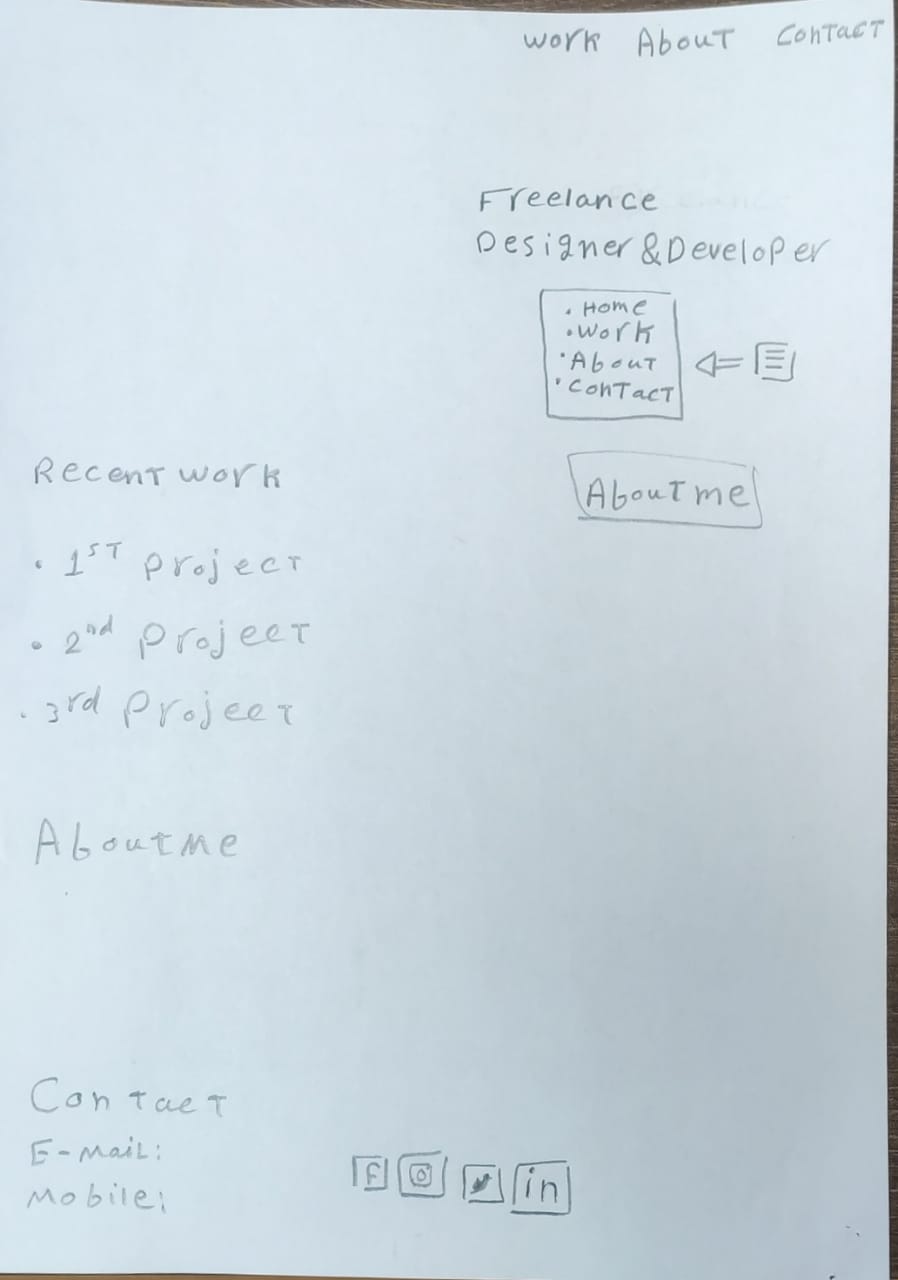 Work About Contact
Freelance
Designer & Developer
• Home
• Work
• About
• Contact
About me
Recent work
• 1ST project
• 2nd project
• 3rd project
About me
Contact
E-mail:
Mobile:
f in